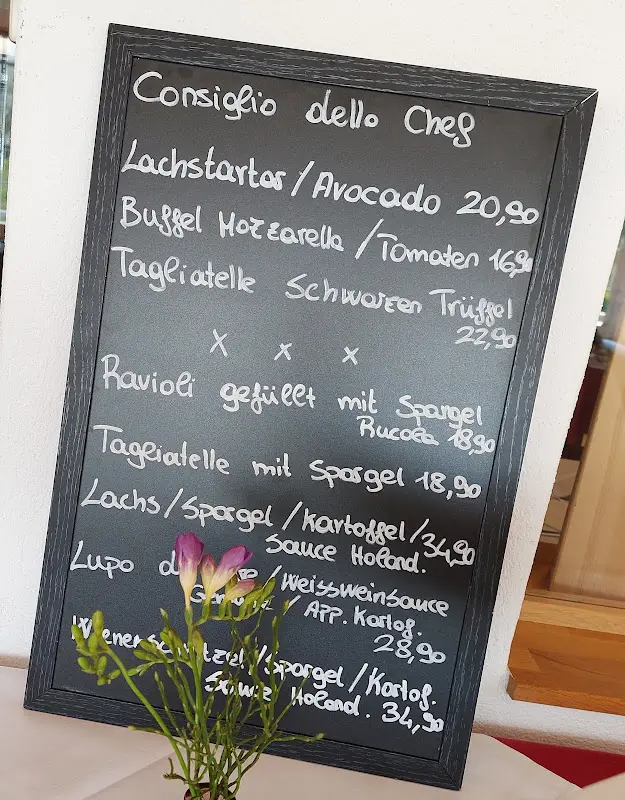 Consiglio dello Chef
Lachstartar/Avocado 20,90
Buffel Mozzarella/Tomaten 16,90
Tagliatelle Schwarzen Trüffel
22,90
x x x
Ravioli gefüllt mit Spargel
Rucola 18,90
Tagliatelle mit Spargel 18,90
Lachs/Spargel/Kartoffel/34,90
Sauce Holand.
Lupo /Weissweinsauce
/App. Kartof.
28,90
Wienerschnitzel/Spargel/Kartof.
Sauce Holand. 34,90